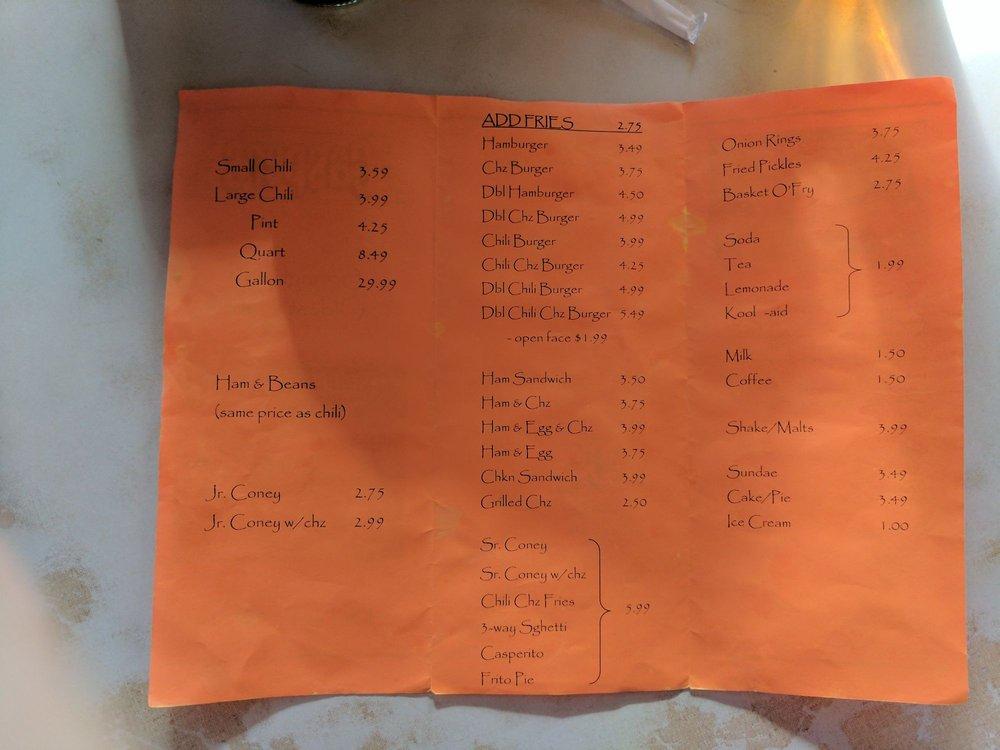 Small Chili 3.59
Large Chili 3.99
Pint 4.25
Quart 8.49
Gallon 29.99
Ham & Beans
(same price as chili)
Jr. Coney 2.75
Jr. Coney w/chz 2.99
ADD FRIES 2.75
Hamburger 3.49
Chz Burger 3.75
Dbl Hamburger 4.50
Dbl Chz Burger 4.99
Chili Burger 3.99
Chili Chz Burger 4.25
Dbl Chili Burger 4.99
Dbl Chili Chz Burger 5.49
- open face $1.99
Ham Sandwich 3.50
Ham & Chz 3.75
Ham & Egg & Chz 3.99
Ham & Egg 3.75
Chkn Sandwich 3.99
Grilled Chz 2.50
Sr. Coney
Sr. Coney w/chz
Chili Chz Fries
5.99
3-way Sghetti
Casperito
Frito Pie
Onion Rings 3.75
Fried Pickles 4.25
Basket O'Fry 2.75
Soda
Tea 1.99
Lemonade
Kool -aid
Milk 1.50
Coffee 1.50
Shake/Malts 3.99
Sundae 3.49
Cake/Pie 3.49
Ice Cream 1.00